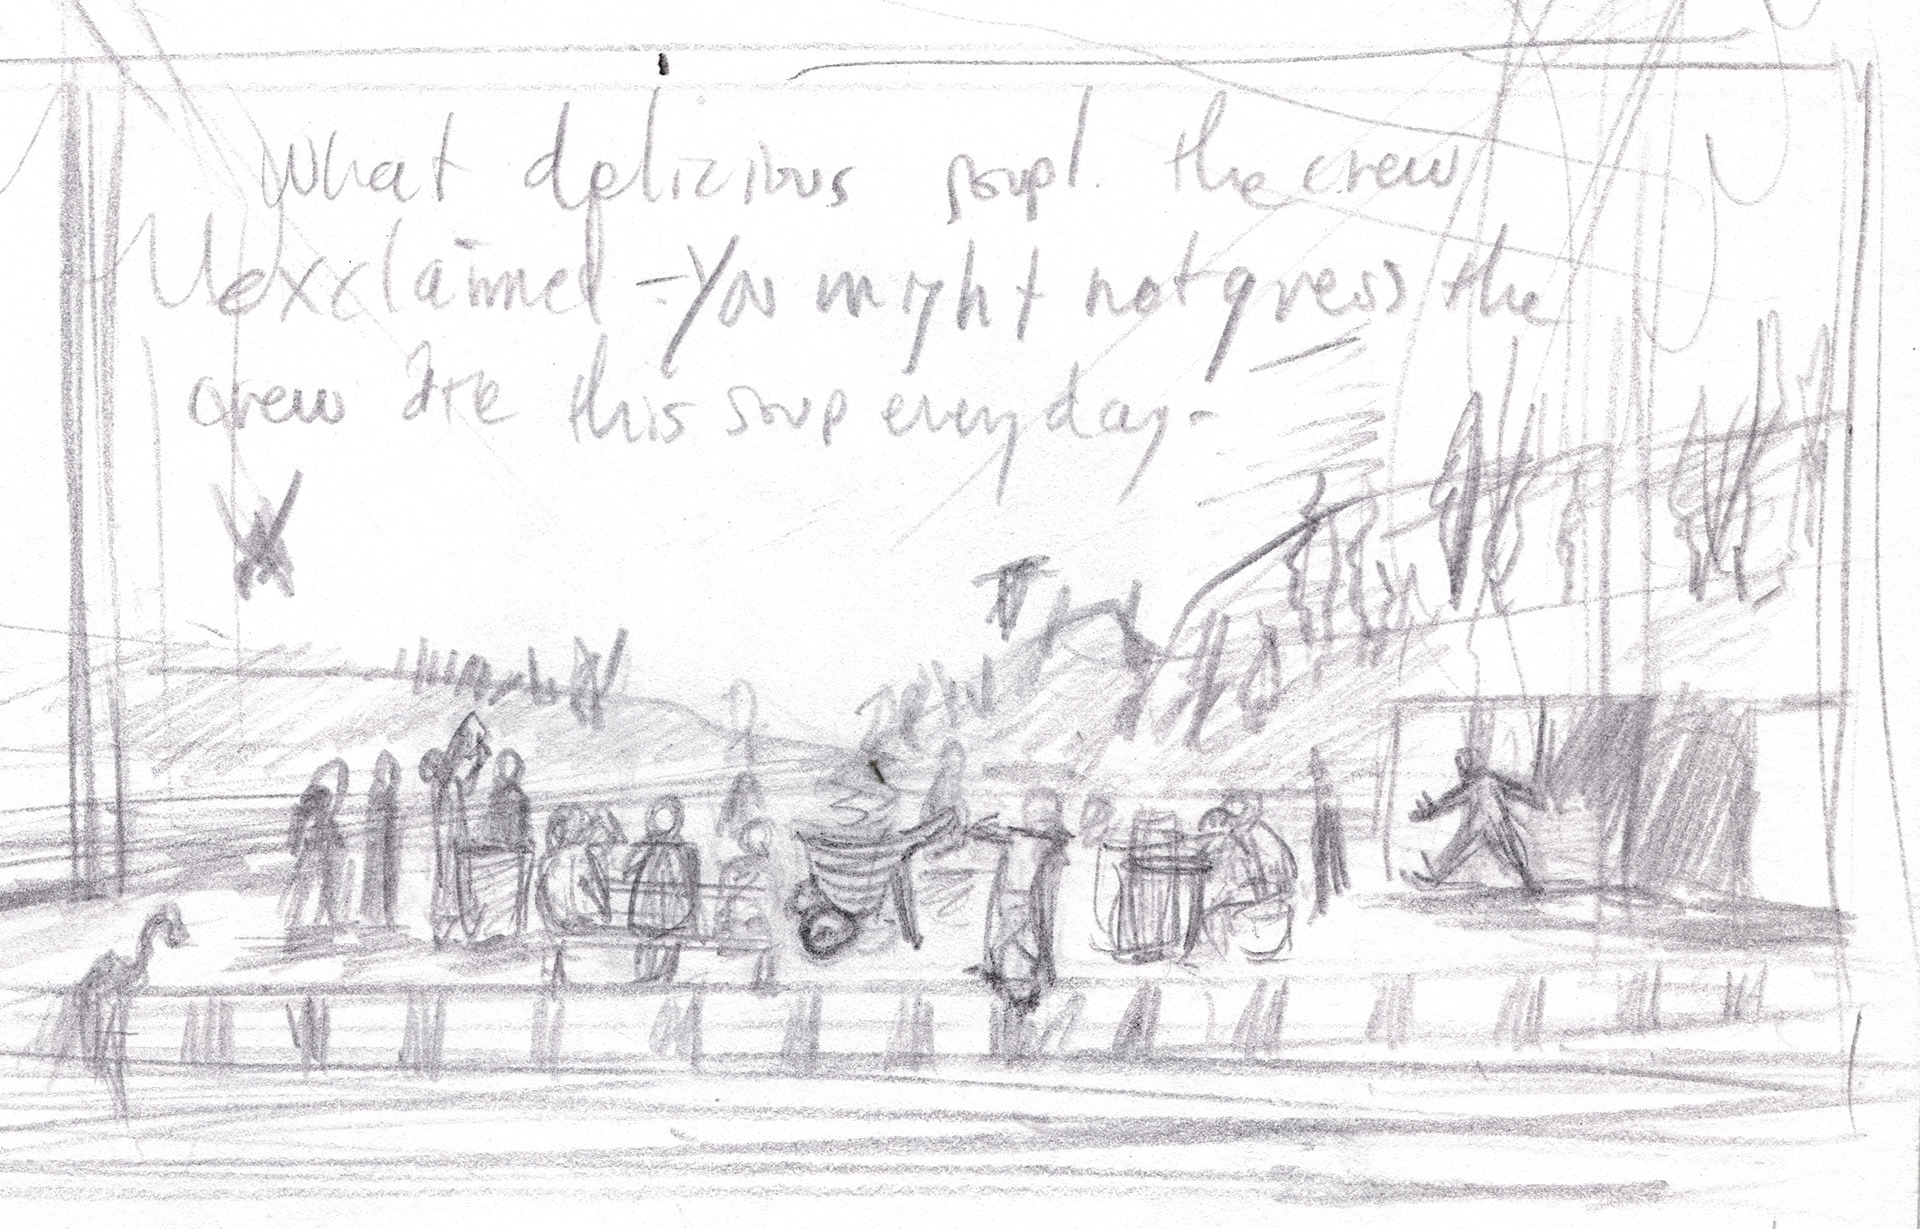 What delizious soup! the crew
exxclaimed - You might not guess the
crew ate this soup everyday-